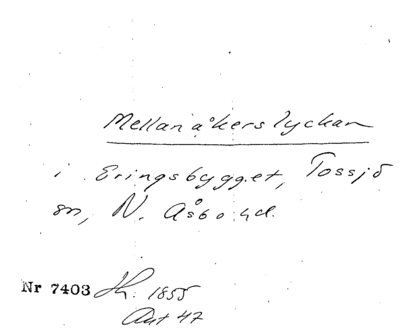 Mellanåkerslyckan
i Eringsbygget, Tossjö
sn, N. Åsbo hd.
Nr 7403 Jh. 1855
Akt 47